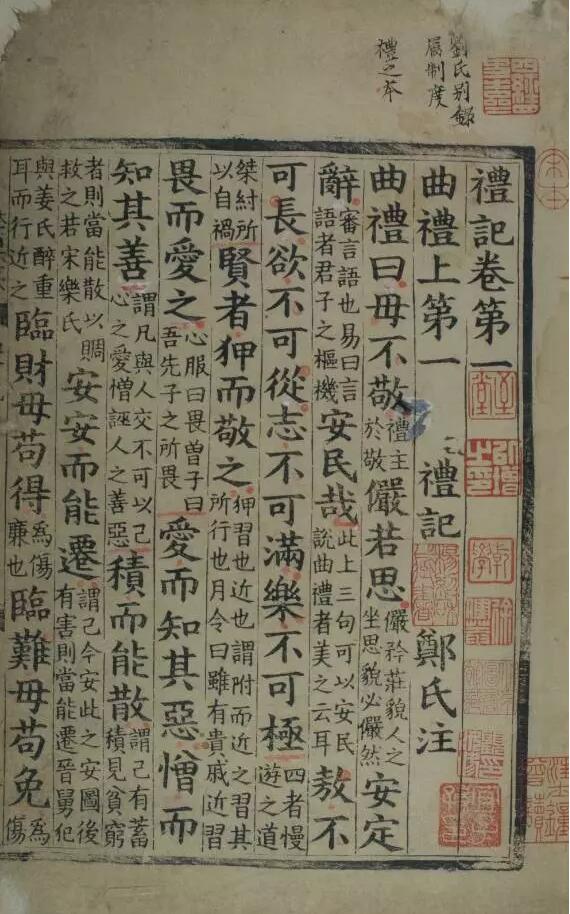 劉氏別錄
屬制度
禮之本
宋本
汪士鐘曾讀
禮記卷第一
曲禮上第一 禮記 鄭氏注
曲禮曰毋不敬禮主於敬儼若思儼矜莊貌人之坐思貌必儼然安定
辭審言語也易曰言語者君子之樞機安民哉此上三句可以安民說曲禮者美之云耳敖不
可長欲不可從志不可滿樂不可極四者慢遊之道
桀紂所以自禍賢者狎而敬之狎習也近也謂附而近之習其所行也月令曰雖有貴戚近習
畏而愛之心服曰畏曾子曰吾先子之所畏愛而知其惡憎而
知其善謂凡與人交不可以己心之愛憎誣人之善惡積而能散謂己有蓄積見貧窮
者則當能散以賙救之若宋樂氏安安而能遷謂己今安此之安圖後有害則當能遷晉舅犯
與姜氏醉重耳而行近之臨財毋苟得為傷廉也臨難毋苟免為傷